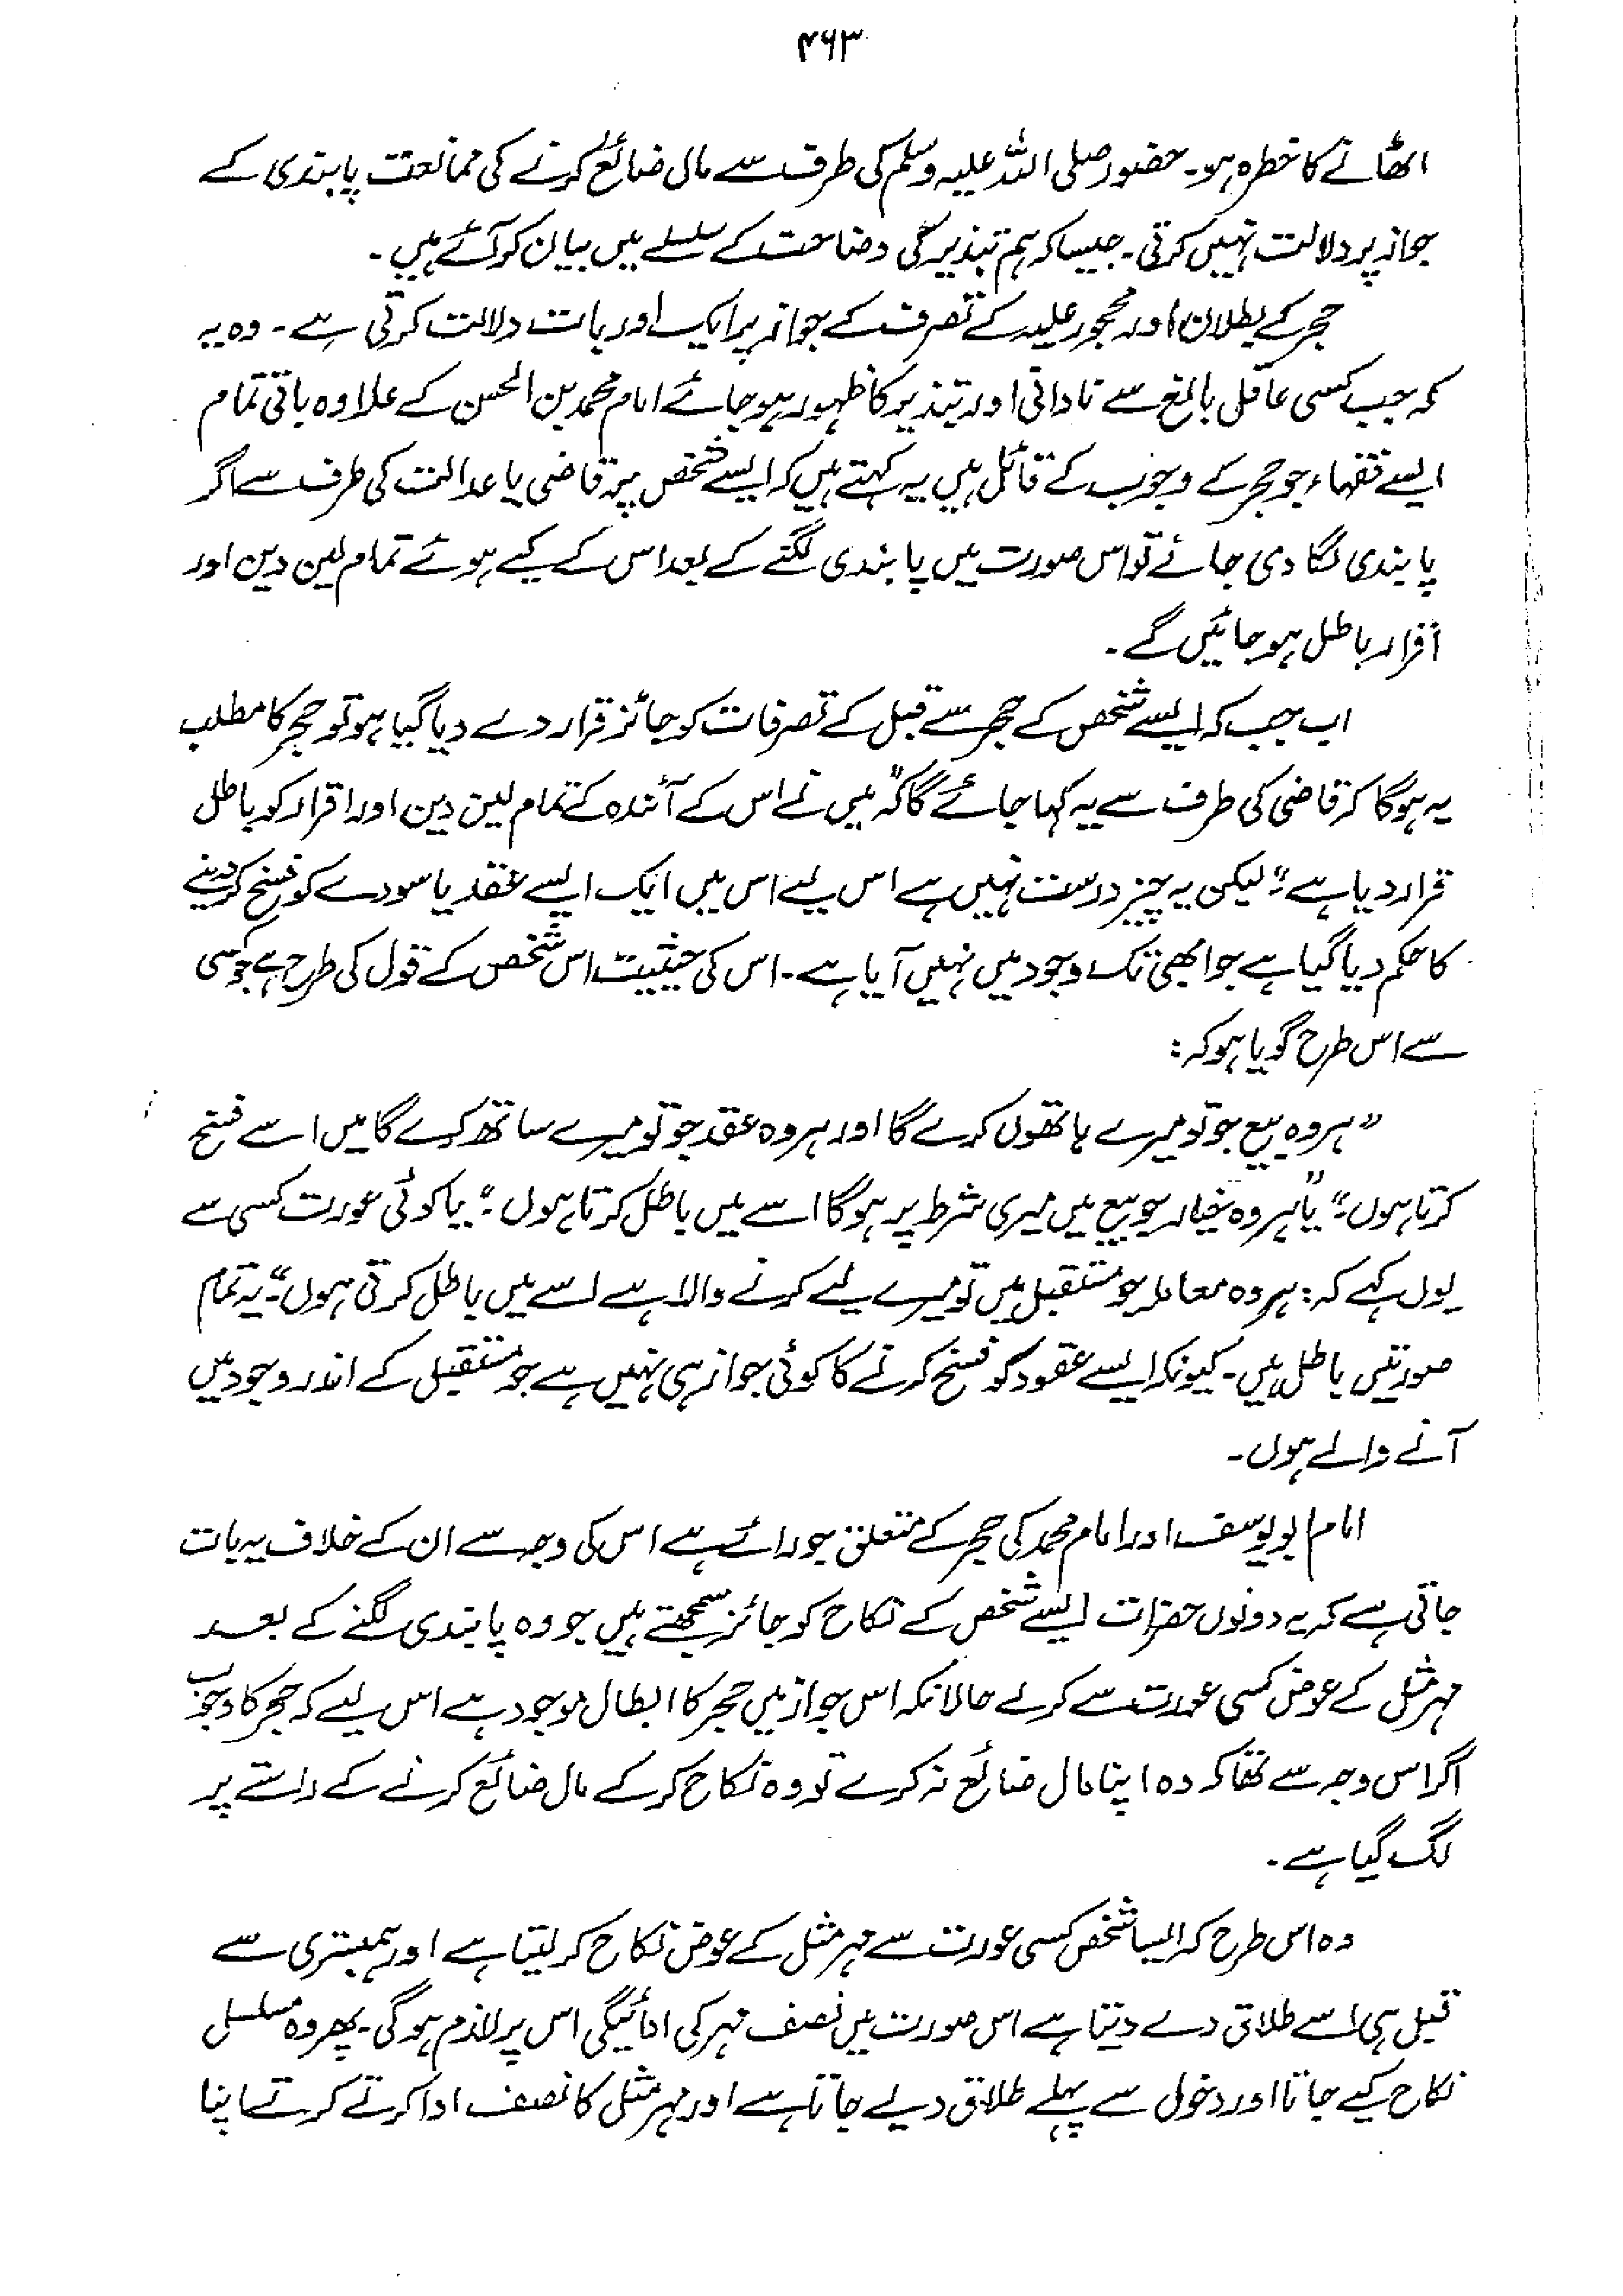 ۴۶۳
اٹھانے کا خطرہ ہو۔ حضور صلی اللہ علیہ وسلم کی طرف سے مال ضائع کرنے کی ممانعت پابندی کے
جواز پر دلالت نہیں کرتی۔ جیسا کہ ہم تبذیر کی وضاحت کے سلسلے میں بیان کر آئے ہیں۔
حجر کے بطلان اور محجور علیہ کے تصرف کے جواز پر ایک اور بات دلالت کرتی ہے۔ وہ یہ
کہ جب کسی عاقل بالغ سے نادانی اور تبذیر کا ظہور ہو جائے امام محمد بن الحسن کے علاوہ باقی تمام
ایسے فقہاء جو حجر کے وجوب کے قائل ہیں یہ کہتے ہیں کہ ایسے شخص پر قاضی یا عدالت کی طرف سے اگر
پابندی لگا دی جائے تو اس صورت میں پابندی لگنے کے بعد اس کے کیے ہوئے تمام لین دین اور
اقرار باطل ہو جائیں گے۔
اب جب کہ ایسے شخص کے حجر سے قبل کے تصرفات کو جائز قرار دے دیا گیا ہو تو حجر کا مطلب
یہ ہو گا کہ قاضی کی طرف سے یہ کہا جائے گا کہ "میں نے اس کے آئندہ کے تمام لین دین اور اقرار کو باطل
قرار دیا ہے"؛ لیکن یہ چیز درست نہیں ہے اس لیے اس میں ایک ایسے عقد یا سودے کو فسخ کر دینے
کا حکم دیا گیا ہے جو ابھی تک وجود میں نہیں آیا ہے۔ اس کی حیثیت اس شخص کے قول کی طرح ہے جو کسی
سے اس طرح گویا ہو کہ:
"ہر وہ بیع جو تو میرے ہاتھوں کرے گا اور ہر وہ عقد جو تو میرے ساتھ کرے گا میں اسے فسخ
کرتا ہوں" یا "ہر وہ خیار جو بیع میں میری شرط پر ہو گا اسے میں باطل کرتا ہوں"؛ یا کوئی عورت کسی سے
یوں کہے کہ: ہر وہ معاملہ جو مستقبل میں تو میرے لیے کرنے والا ہے اسے میں باطل کرتی ہوں" یہ تمام
صورتیں باطل ہیں۔ کیونکہ ایسے عقود کو فسخ کرنے کا کوئی جواز ہی نہیں ہے جو مستقبل کے اندر وجود میں
آنے والے ہوں۔
امام ابو یوسف اور امام محمد کی حجر کے متعلق جو رائے ہے اس کی وجہ سے ان کے خلاف یہ بات
جاتی ہے کہ یہ دونوں حضرات ایسے شخص کے نکاح کو جائز سمجھتے ہیں جو وہ پابندی لگنے کے بعد
مہر مثل کے عوض کسی عورت سے کرلے حالانکہ اس جواز میں حجر کا ابطال موجود ہے اس لیے کہ حجر کا وجوب
اگر اس وجہ سے تھا کہ وہ اپنا مال ضائع نہ کرے تو وہ نکاح کر کے مال ضائع کرنے کے راستے پر
لگ گیا ہے۔
وہ اس طرح کہ ایسا شخص کسی عورت سے مہر مثل کے عوض نکاح کر لیتا ہے اور ہمبستری سے
قبل ہی اسے طلاق دے دیتا ہے اس صورت میں نصف مہر کی ادائیگی اس پر لازم ہو گی۔ پھر وہ مسلسل
نکاح کیے جاتا اور دخول سے پہلے طلاق دیے جاتا ہے اور مہر مثل کا نصف ادا کرتے کرتے اپنا